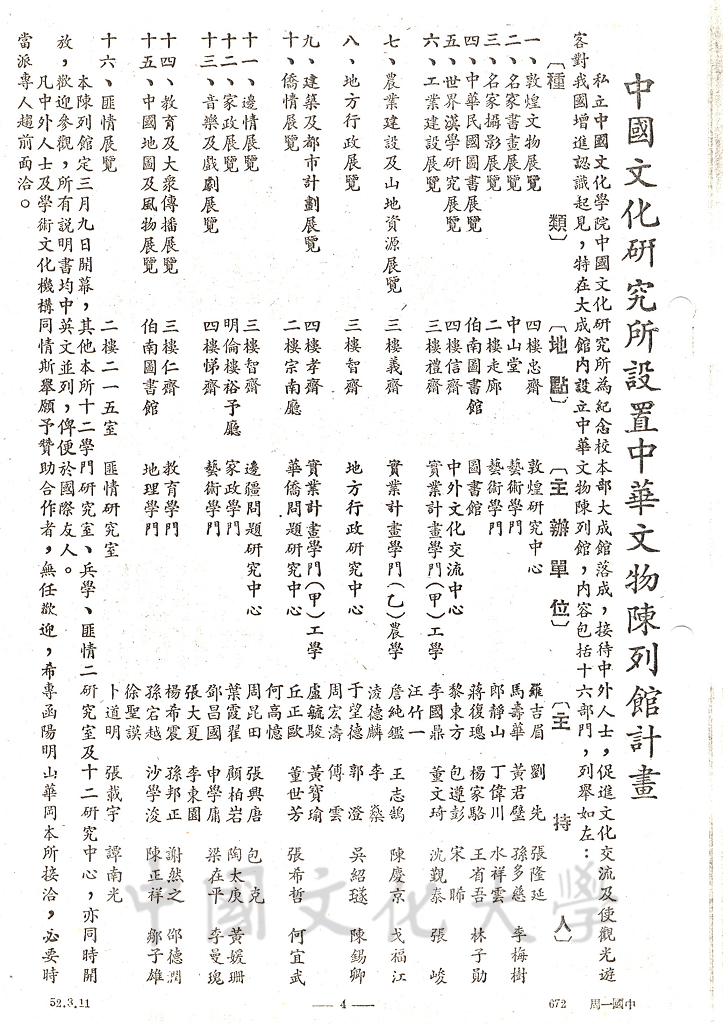 中國文化研究所設置中華文物陳列館計畫
私立中國文化學院中國文化研究所為紀念校本部大成館落成，接待中外人士，促進文化交流及使觀光遊
客對我國增進認識起見，特在大成館內設立中華文物陳列館，內容包括十六部門，列舉如左：
〔種　類〕　〔地　點〕　〔主　辦　單　位〕　〔主　持　人〕
一、敦煌文物展覽　四樓忠齋　敦煌研究中心　羅吉眉　劉　先　張隆延
二、名家書畫展覽　中山堂　藝術學門　馬壽華　黃君璧　孫多慈　李梅樹
三、名家攝影展覽　二樓走廊　藝術學門　郎靜山　丁偉川　水祥雲
四、中華民國圖書展覽　伯南圖書館　圖書館　蔣復璁　楊家駱　王省吾　林子勛
五、世界漢學研究展覽　四樓信齋　中外文化交流中心　黎東方　包遵彭　宋　晞
六、工業建設展覽　三樓禮齋　實業計畫學門（甲）工學　李國鼎　董文琦　沈覲泰　張　峻
汪竹一
七、農業建設及山地資源展覽　三樓義齋　實業計畫學門（乙）農學　詹純鑑　王志鵠　陳慶京　戈福江
淩德麟　李　燊
八、地方行政展覽　三樓智齋　地方行政研究中心　于望德　郭　澄　吳紹璲　陳錫卿
周宏濤　傅　雲
九、建築及都市計劃展覽　四樓孝齋　實業計畫學門（甲）工學　盧毓駿　黃寶瑜
十、僑情展覽　二樓宗南廳　華僑問題研究中心　丘正歐　董世芳　張希哲　何宜武
何高憶
十一、邊情展覽　三樓智齋　邊疆問題研究中心　周昆田　張興唐　包　克
十二、家政展覽　明倫樓裕予廳　家政學門　葉霞翟　顏柏岩　陶太庚　黃媛珊
十三、音樂及戲劇展覽　四樓悌齋　藝術學門　鄧昌國　申學庸　梁在平　李曼瑰
張大夏　李東園
十四、教育及大眾傳播展覽　三樓仁齋　教育學門　楊希震　孫邦正　謝然之　邵德潤
十五、中國地圖及風物展覽　伯南圖書館　地理學門　孫宕越　沙學浚　陳正祥　鄒子雄
徐聖謨
十六、匪情展覽　二樓二一五室　匪情研究室　卜道明　張載宇　譚南光
本陳列館定三月九日開幕，其他本所十二學門研究室、兵學、匪情二研究室及十二研究中心，亦同時開
放，歡迎參觀，所有說明書均中英文並列，俾便於國際友人。
凡中外人士及學術文化機構同情斯舉願予贊助合作者，無任歡迎，希專函陽明山華岡本所接洽，必要時
當派專人趨前面洽。
中國文化大學
52.3.11
— 4 —
672　周一國中